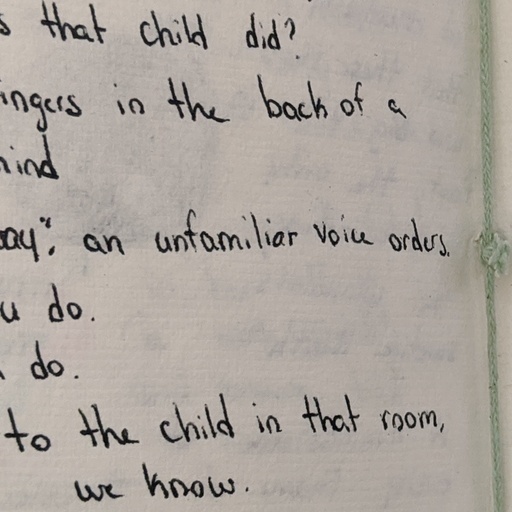 s that child did?
ingers in the back of a
ind
ay", an unfamiliar voice orders.
u do.
do.
to the child in that room,
we know.